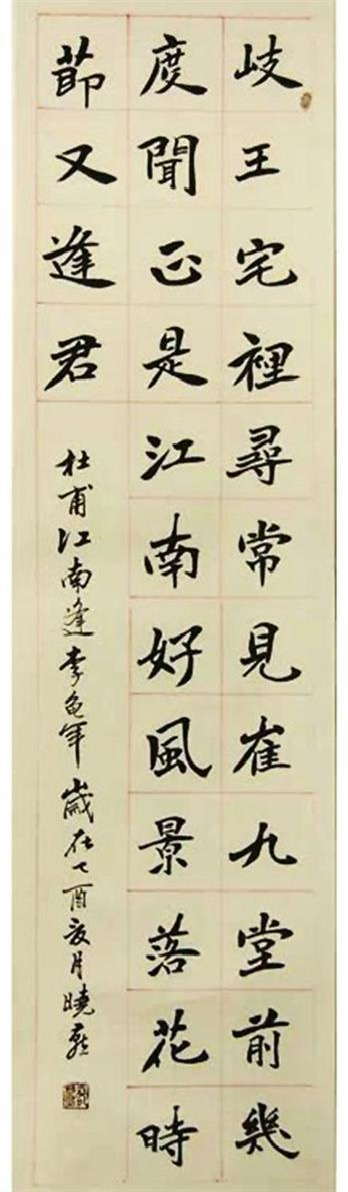 岐王宅裡尋常見崔九堂前幾
度聞正是江南好風景落花時
節又逢君
杜甫江南逢李龜年 歲在乙酉夏月曉